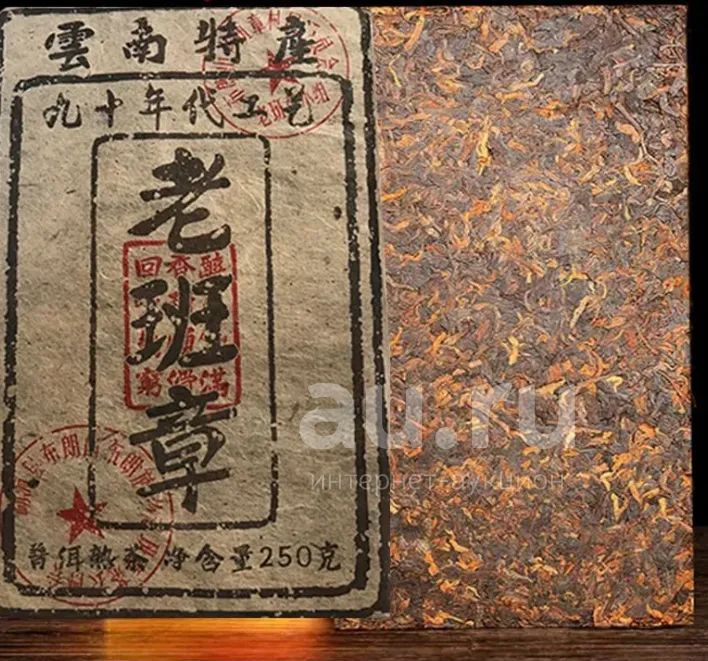 雲南特產
九十年代工艺
老班章
普洱熟茶 净含量250克
au.ru
интернет-аукцион